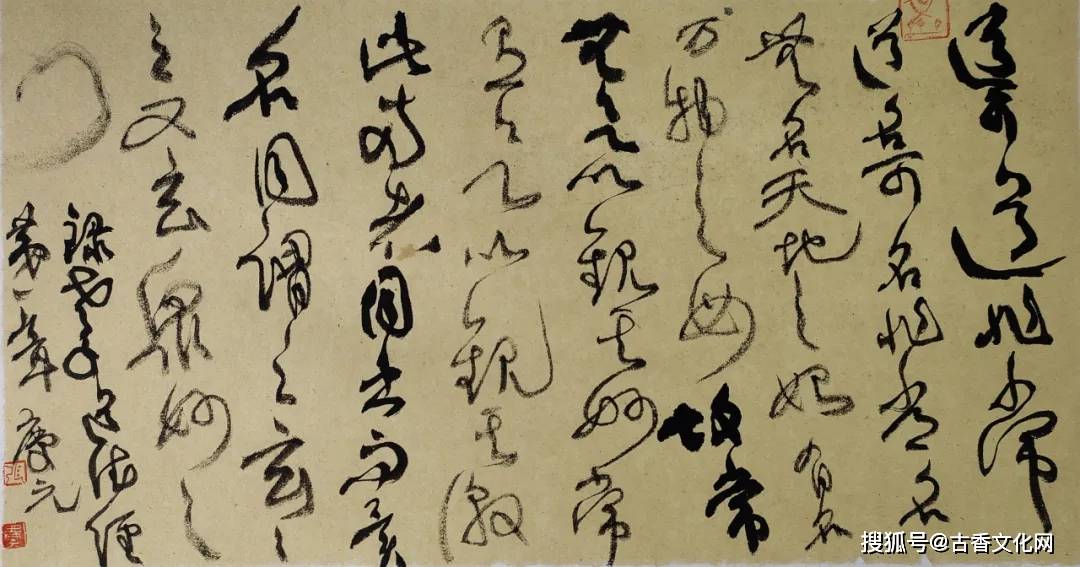 道可道非常
道名可名非常名
無名天地之始有名
万物之母故常
無欲以觀其妙常
有欲以觀其徼
此兩者同出而異
名同謂之玄〻
之又玄眾妙之
門
錄老子道德經
第一章 慶元
搜狐号@古香文化网